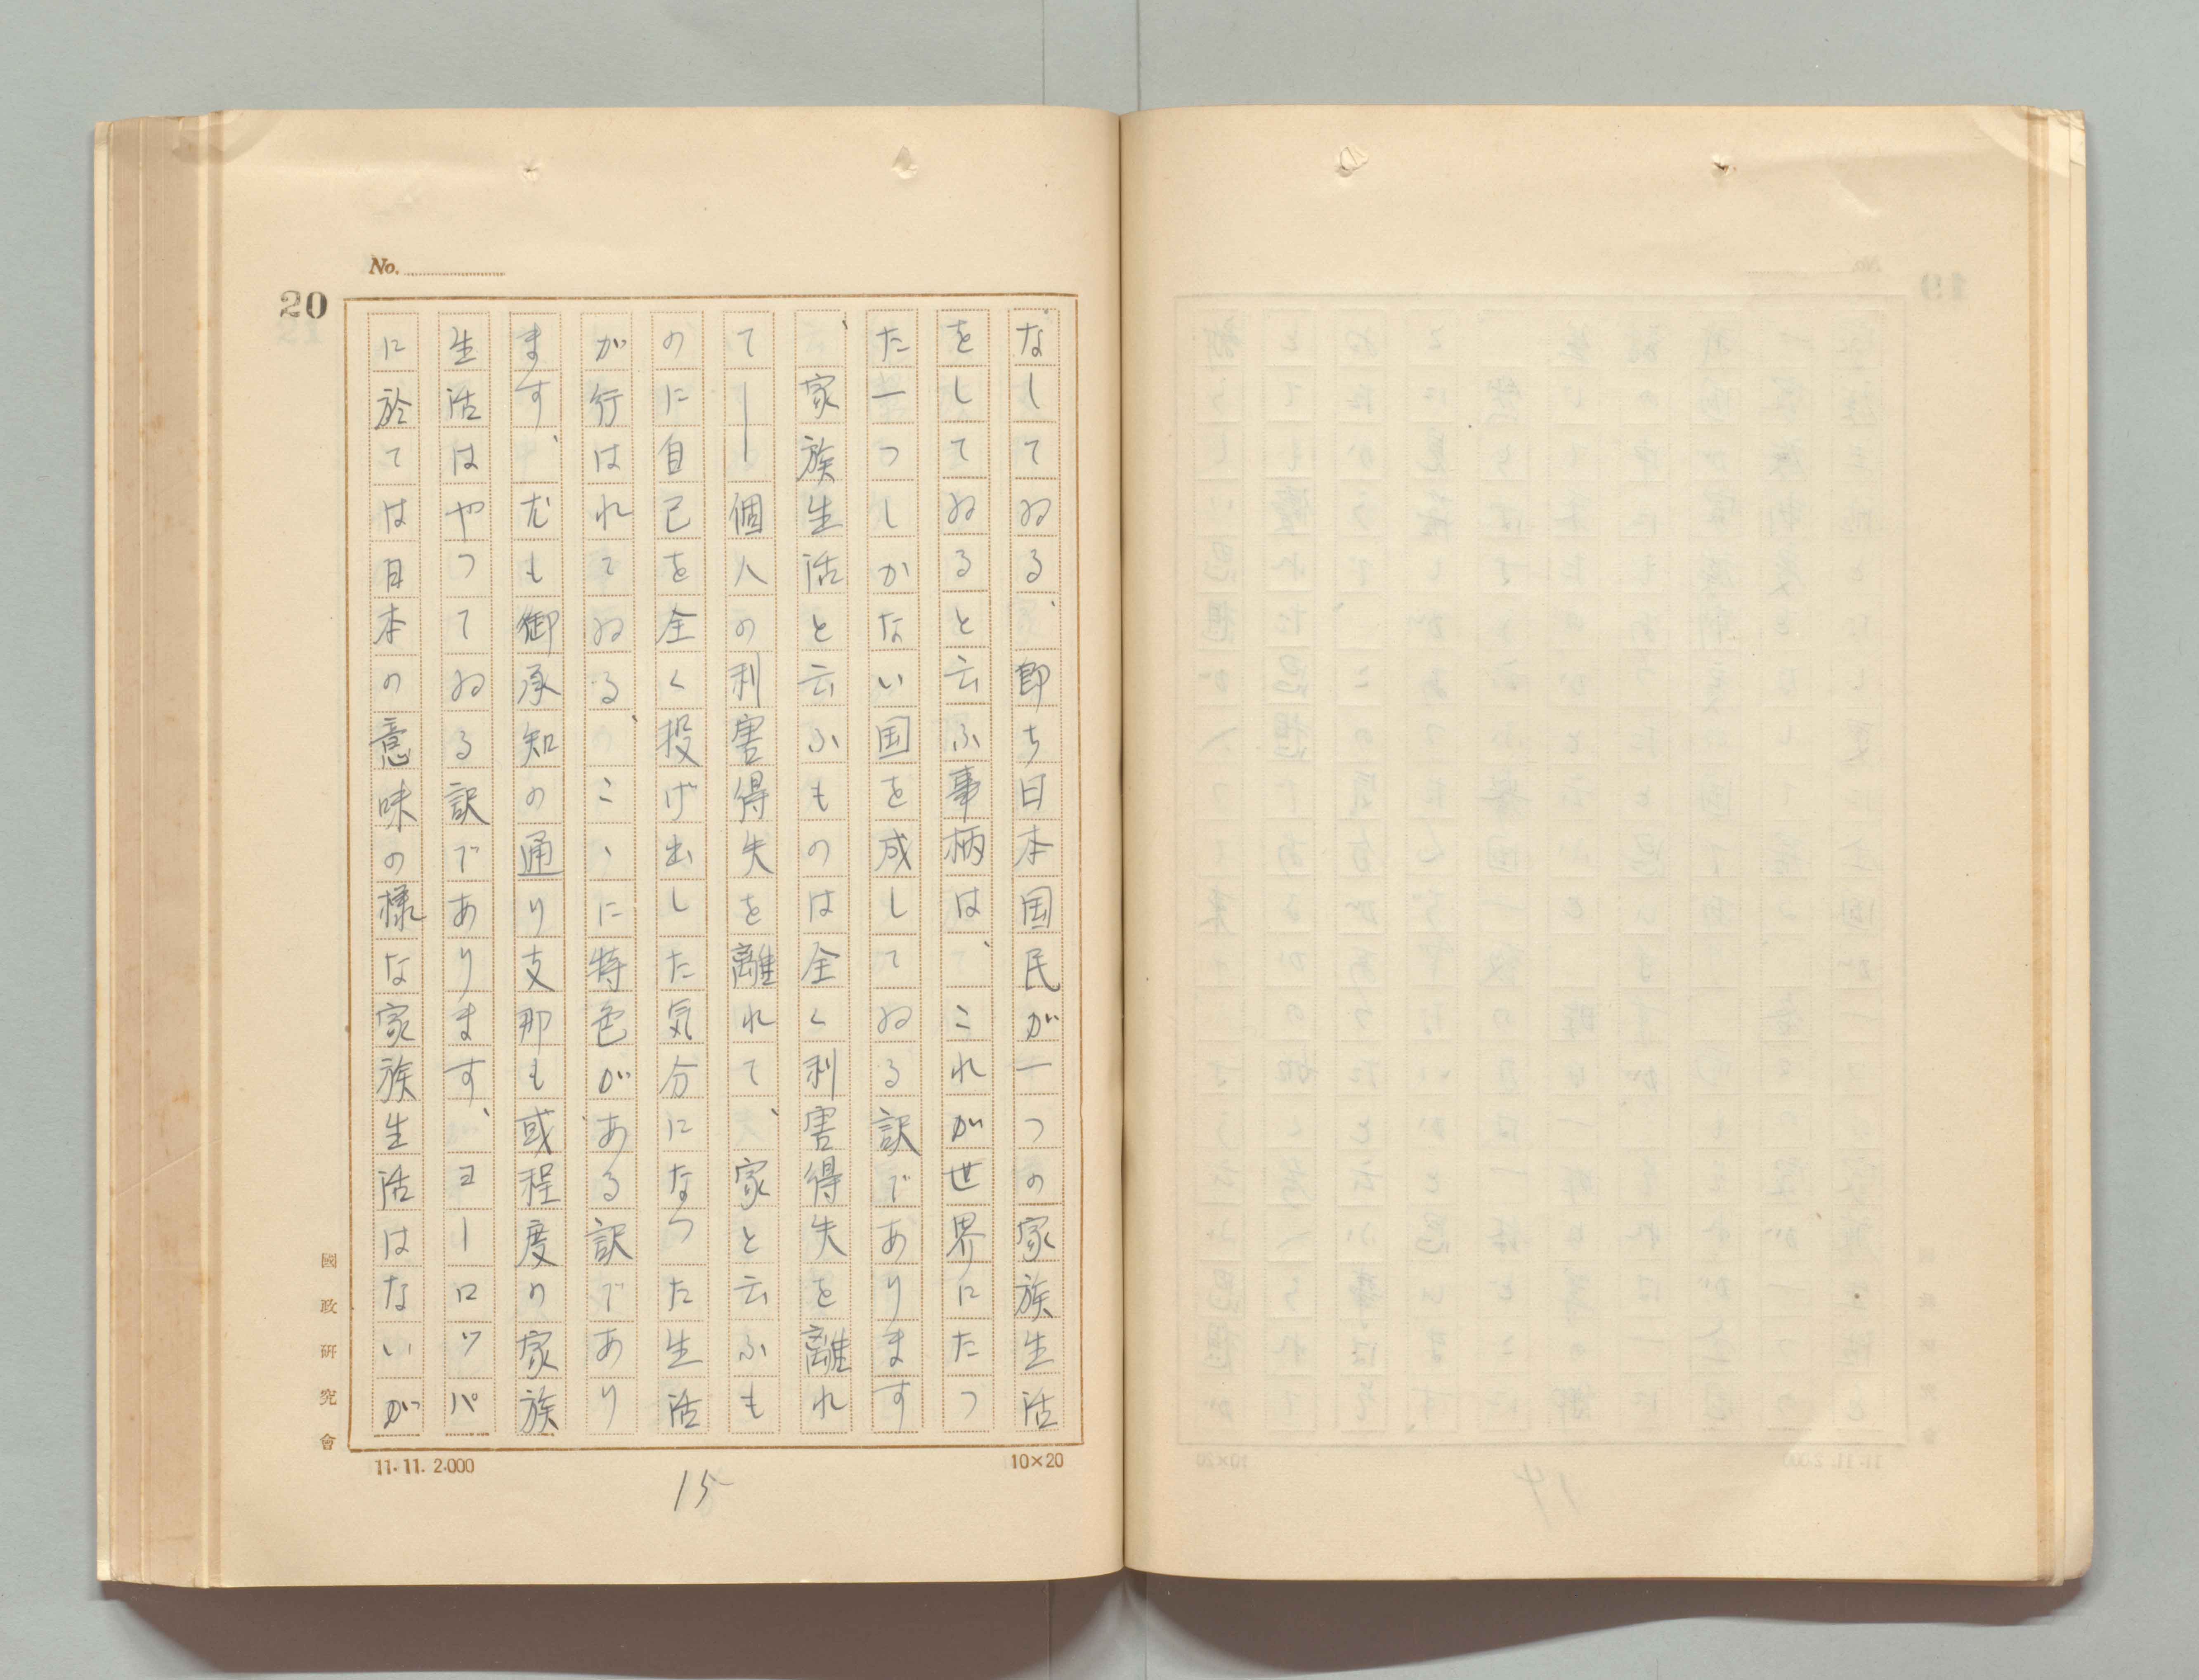 No.
20
なしてゐる、即ち日本国民が一つの家族生活
をしてゐると云ふ事柄は、これが世界にたつ
た一つしかない国を成してゐる訳であります
、家族生活と云ふものは全く利害得失を離れ
て――個人の利害得失を離れて、家と云ふも
のに自己を全く投げ出した気分になつた生活
が行はれてゐる、こゝに特色がある訳であり
ます、尤も御承知の通り支那も或程度の家族
生活はやつてゐる訳であります、ヨーロツパ
に於ては日本の意味の様な家族生活はないが
國政研究會
11.11. 2.000
10×20
15